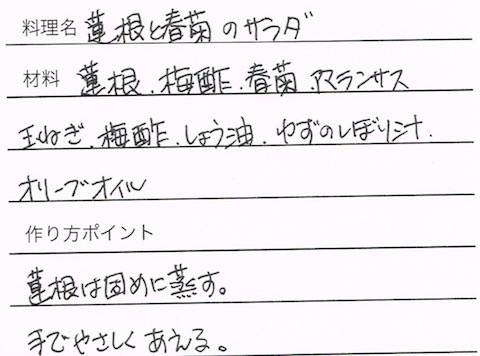 料理名 蓮根と春菊のサラダ
材料 蓮根.梅酢.春菊.アマランサス
玉ねぎ.梅酢.しょう油.ゆずのしぼり汁.
オリーブオイル
作り方ポイント
蓮根は固めに蒸す。
手でやさしくあえる。